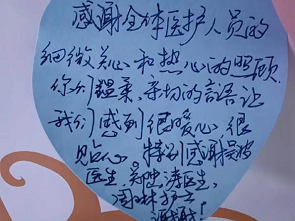 感谢全体医护人员的
细微关心和热心的照顾
你们温柔、亲切的言语让
我们感到很暖心、很
贴心。特别感谢吴
医生、郑医生、
周林护士
谢谢!